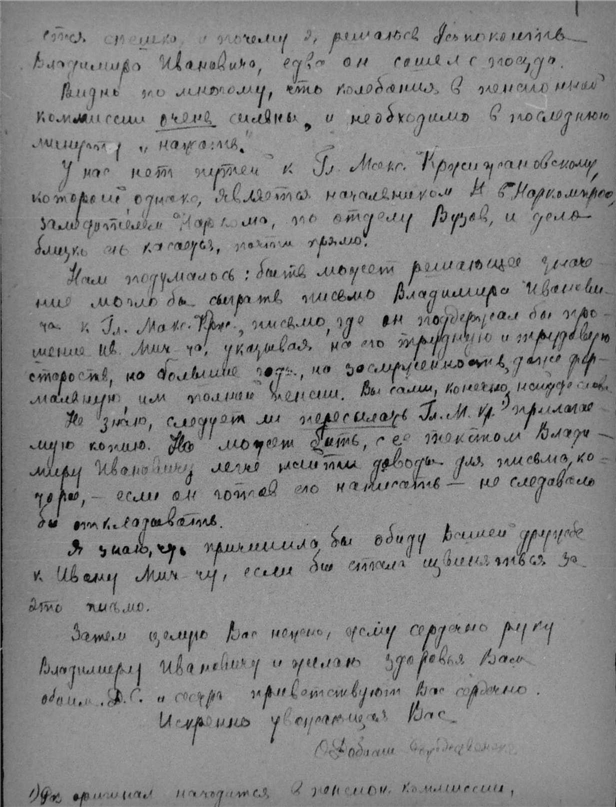 спешно, и почему я решаюсь беспокоить
Владимира Ивановича, едва он сошел с поезда.
Видно по многому, что колебания в пенсионной
комиссии очень сильны, и необходимо в последнюю
минуту „нажать".
У нас нет путей к Гл. Макс. Кржижановскому,
который однако, является начальником в Наркомпросе,
Наркома, по отделу Вузов, и дело
близко его касается, почти прямо.
Нам подумалось: быть может решающее значе-
ние могло бы сыграть письмо Владимира Иванови-
ча к Гл. Макс. Крж., письмо, где он поддержал бы про-
шение Ив. Мих-ча, указывая на его трудную и трудовую
старость, на большие годы, на заслуженность даже фор-
мальную им полной пенсии. Вы сами, конечно, найдете слова.
Не знаю, следует ли пересылать Гл. М. Кр. ¹) прилагае-
мую копию. Но может быть, с ее текстом Влади-
миру Ивановичу легче найти доводы для письма, ко-
торое, – если он готов его написать – не следовало
бы откладывать.
Я знаю, что причинила бы обиду Вашей дружбе
к Ивану Мих-чу, если бы стала извиняться за
это письмо.
Затем целую Вас нежно, жму сердечно руку
Владимиру Ивановичу и желаю здоровья Вам
обоим. Д.С. и сестра приветствуют Вас сердечно.
Искренно уважающая Вас
О. Добиаш-Рождественская
¹) оригинал находится в пенсион. комиссии,